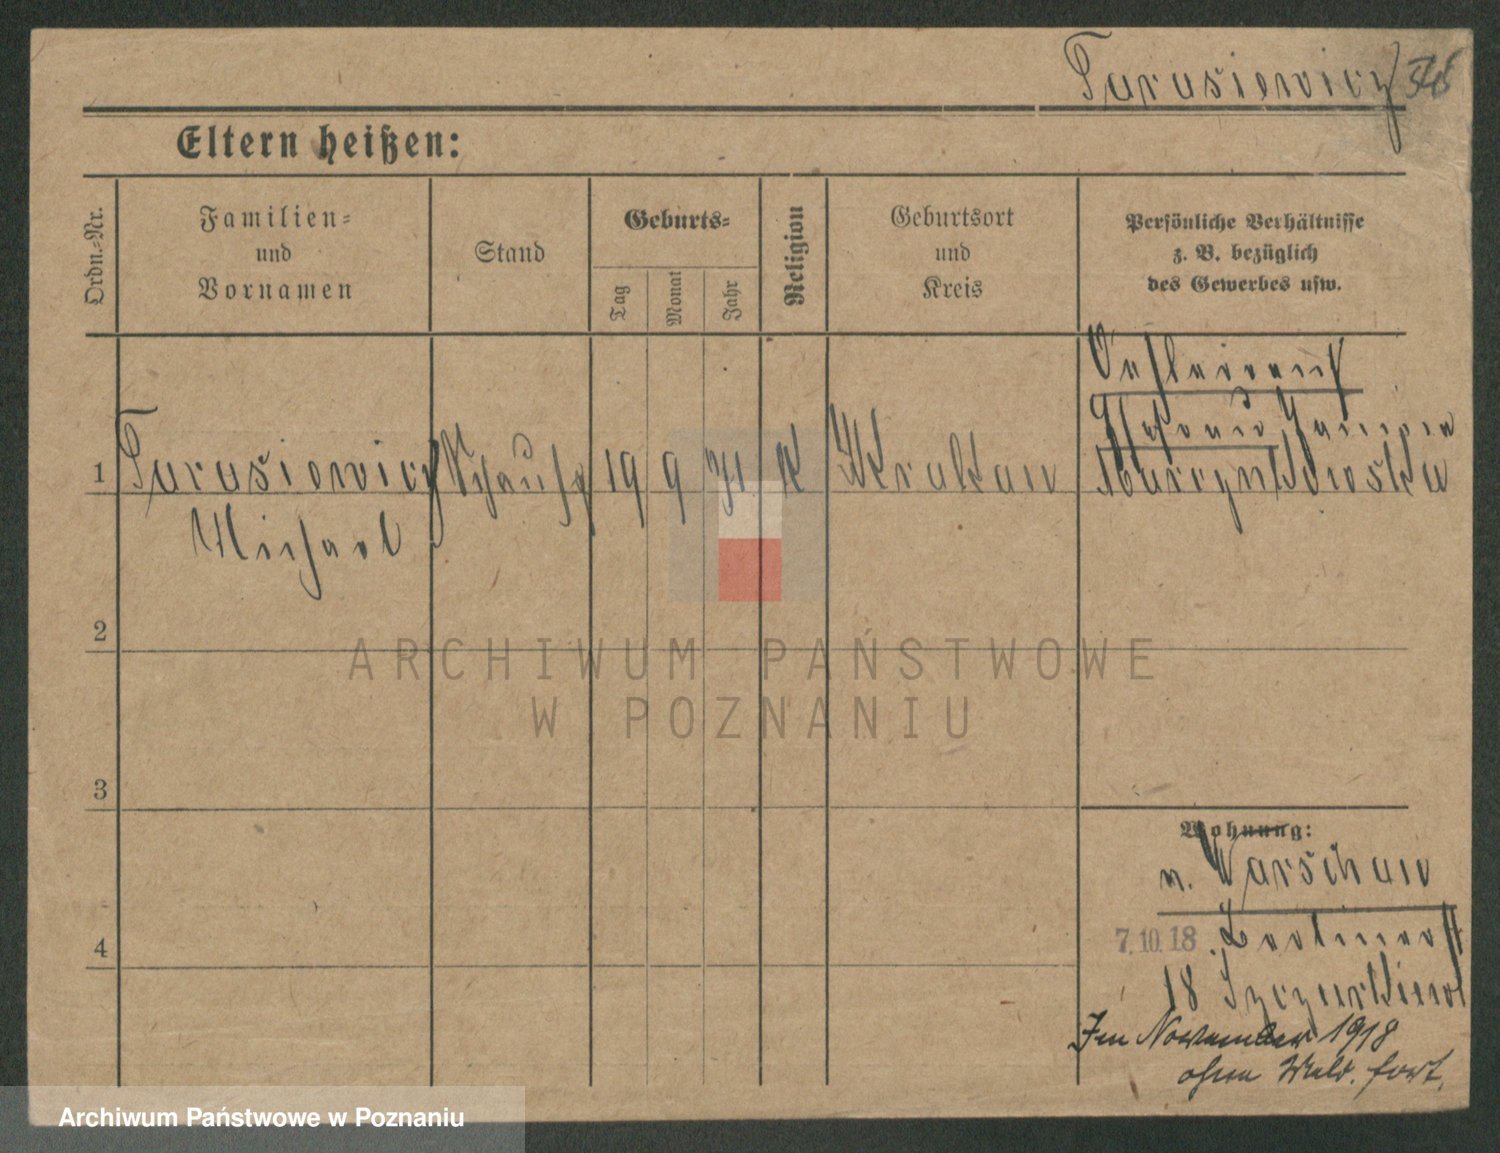 Tarasiewicz
Eltern heißen:
Ordn.=Nr.
Familien=
und
Vornamen
Stand
Geburts=
Tag
Monat
Jahr
Religion
Geburtsort
und
Kreis
Persönliche Verhältnisse
z. B. bezüglich
des Gewerbes usw.
1
Tarasiewicz
Michael
19
9
K
Krakau
2
3
4
Wohnung:
n. Warschau
7. 10. 18
18
Im November 1918
ohne Meld. fort.
ARCHIWUM PAŃSTWOWE
W POZNANIU
Archiwum Państwowe w Poznaniu